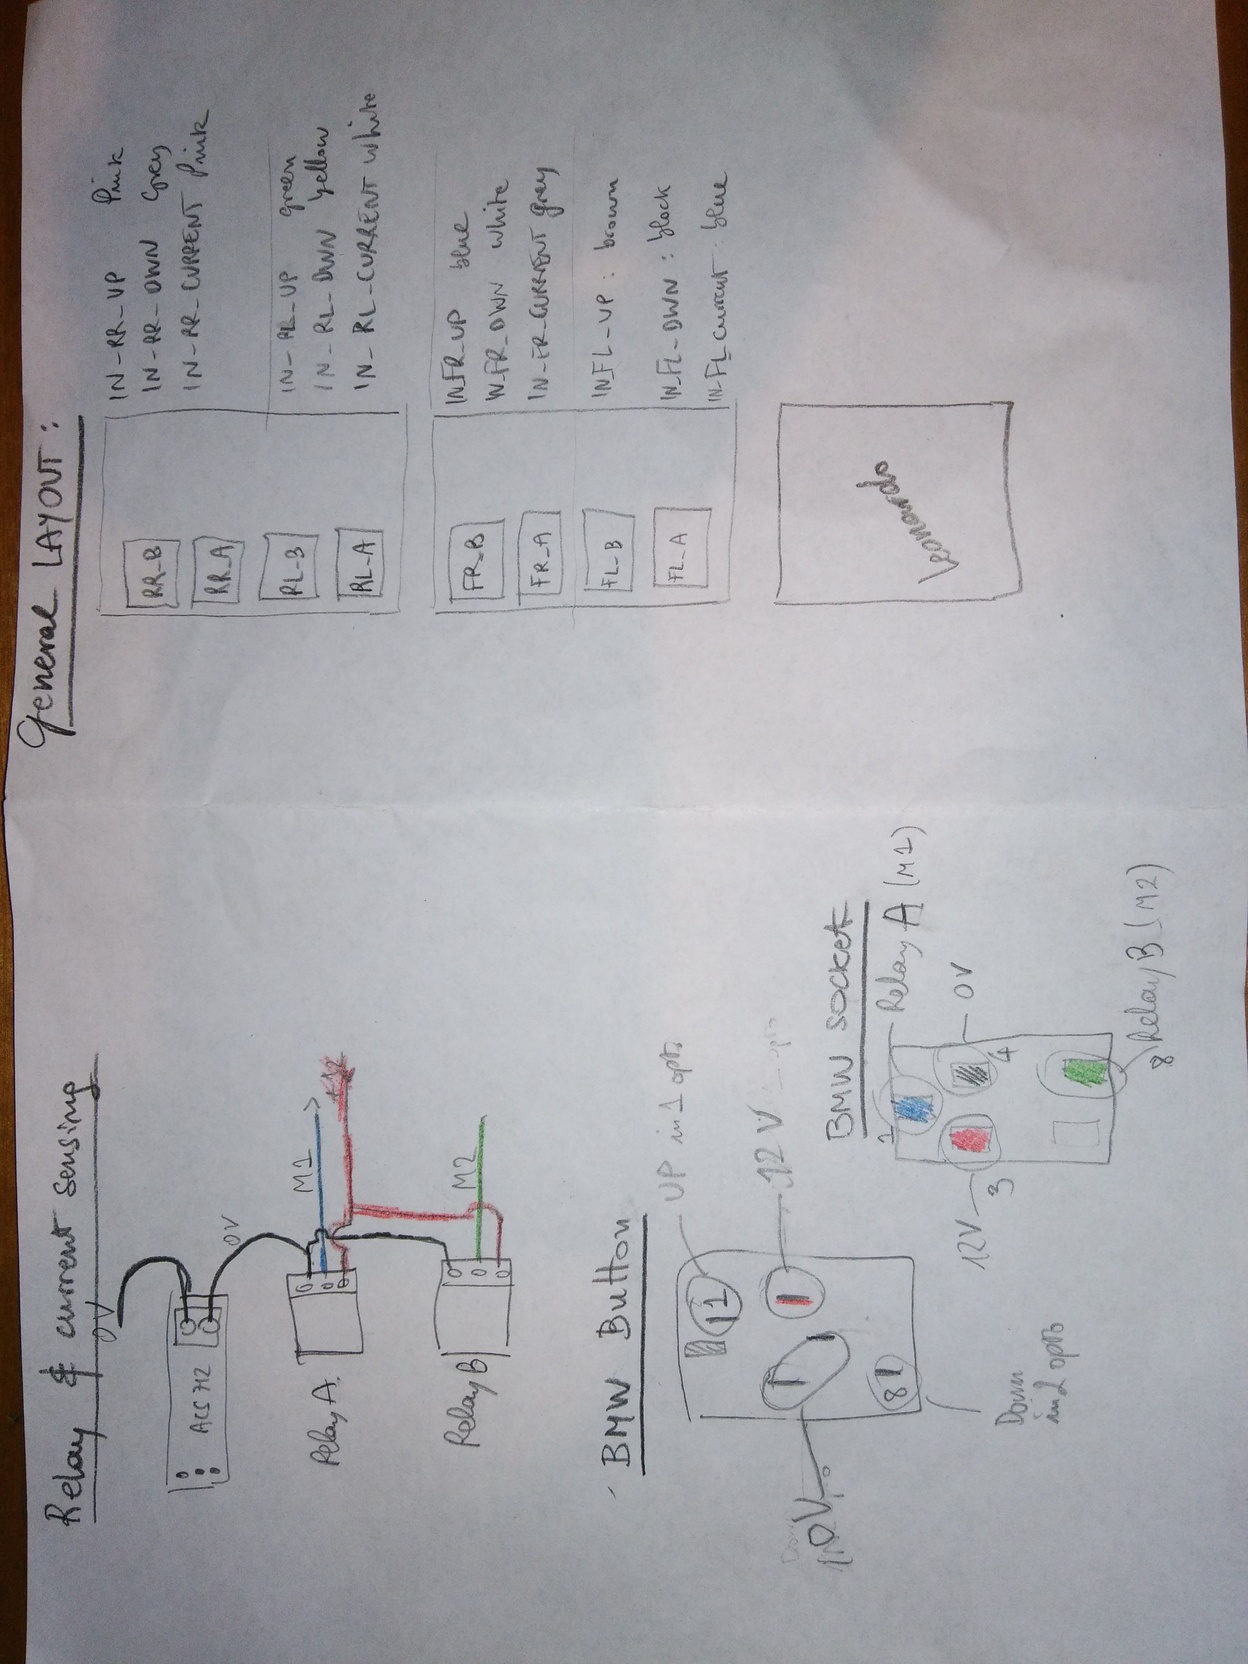 Relay & current sensing
0V
ACS 712
0V
Relay A
M1
+12
Relay B
M2
BMW Button
1
UP in 1 opto
12V
0V
8
Down
in 2 opto
BMW Socket
1
Relay A (M1)
12V
3
4
0V
8
Relay B (M2)
General LAYOUT:
RR_B
RR_A
RL-B
RL-A
IN-RR-UP Pink
IN-RR-DWN Grey
IN-RR-CURRENT Pink
IN-RL-UP green
IN-RL-DWN yellow
IN-RL-CURRENT white
FR_B
FR_A
FL_B
FL_A
IN_FR_UP blue
IN_FR_DWN white
IN-FR-CURRENT grey
IN_FL-UP : brown
IN_FL-DWN : black
IN-FL_current : blue
Leonardo